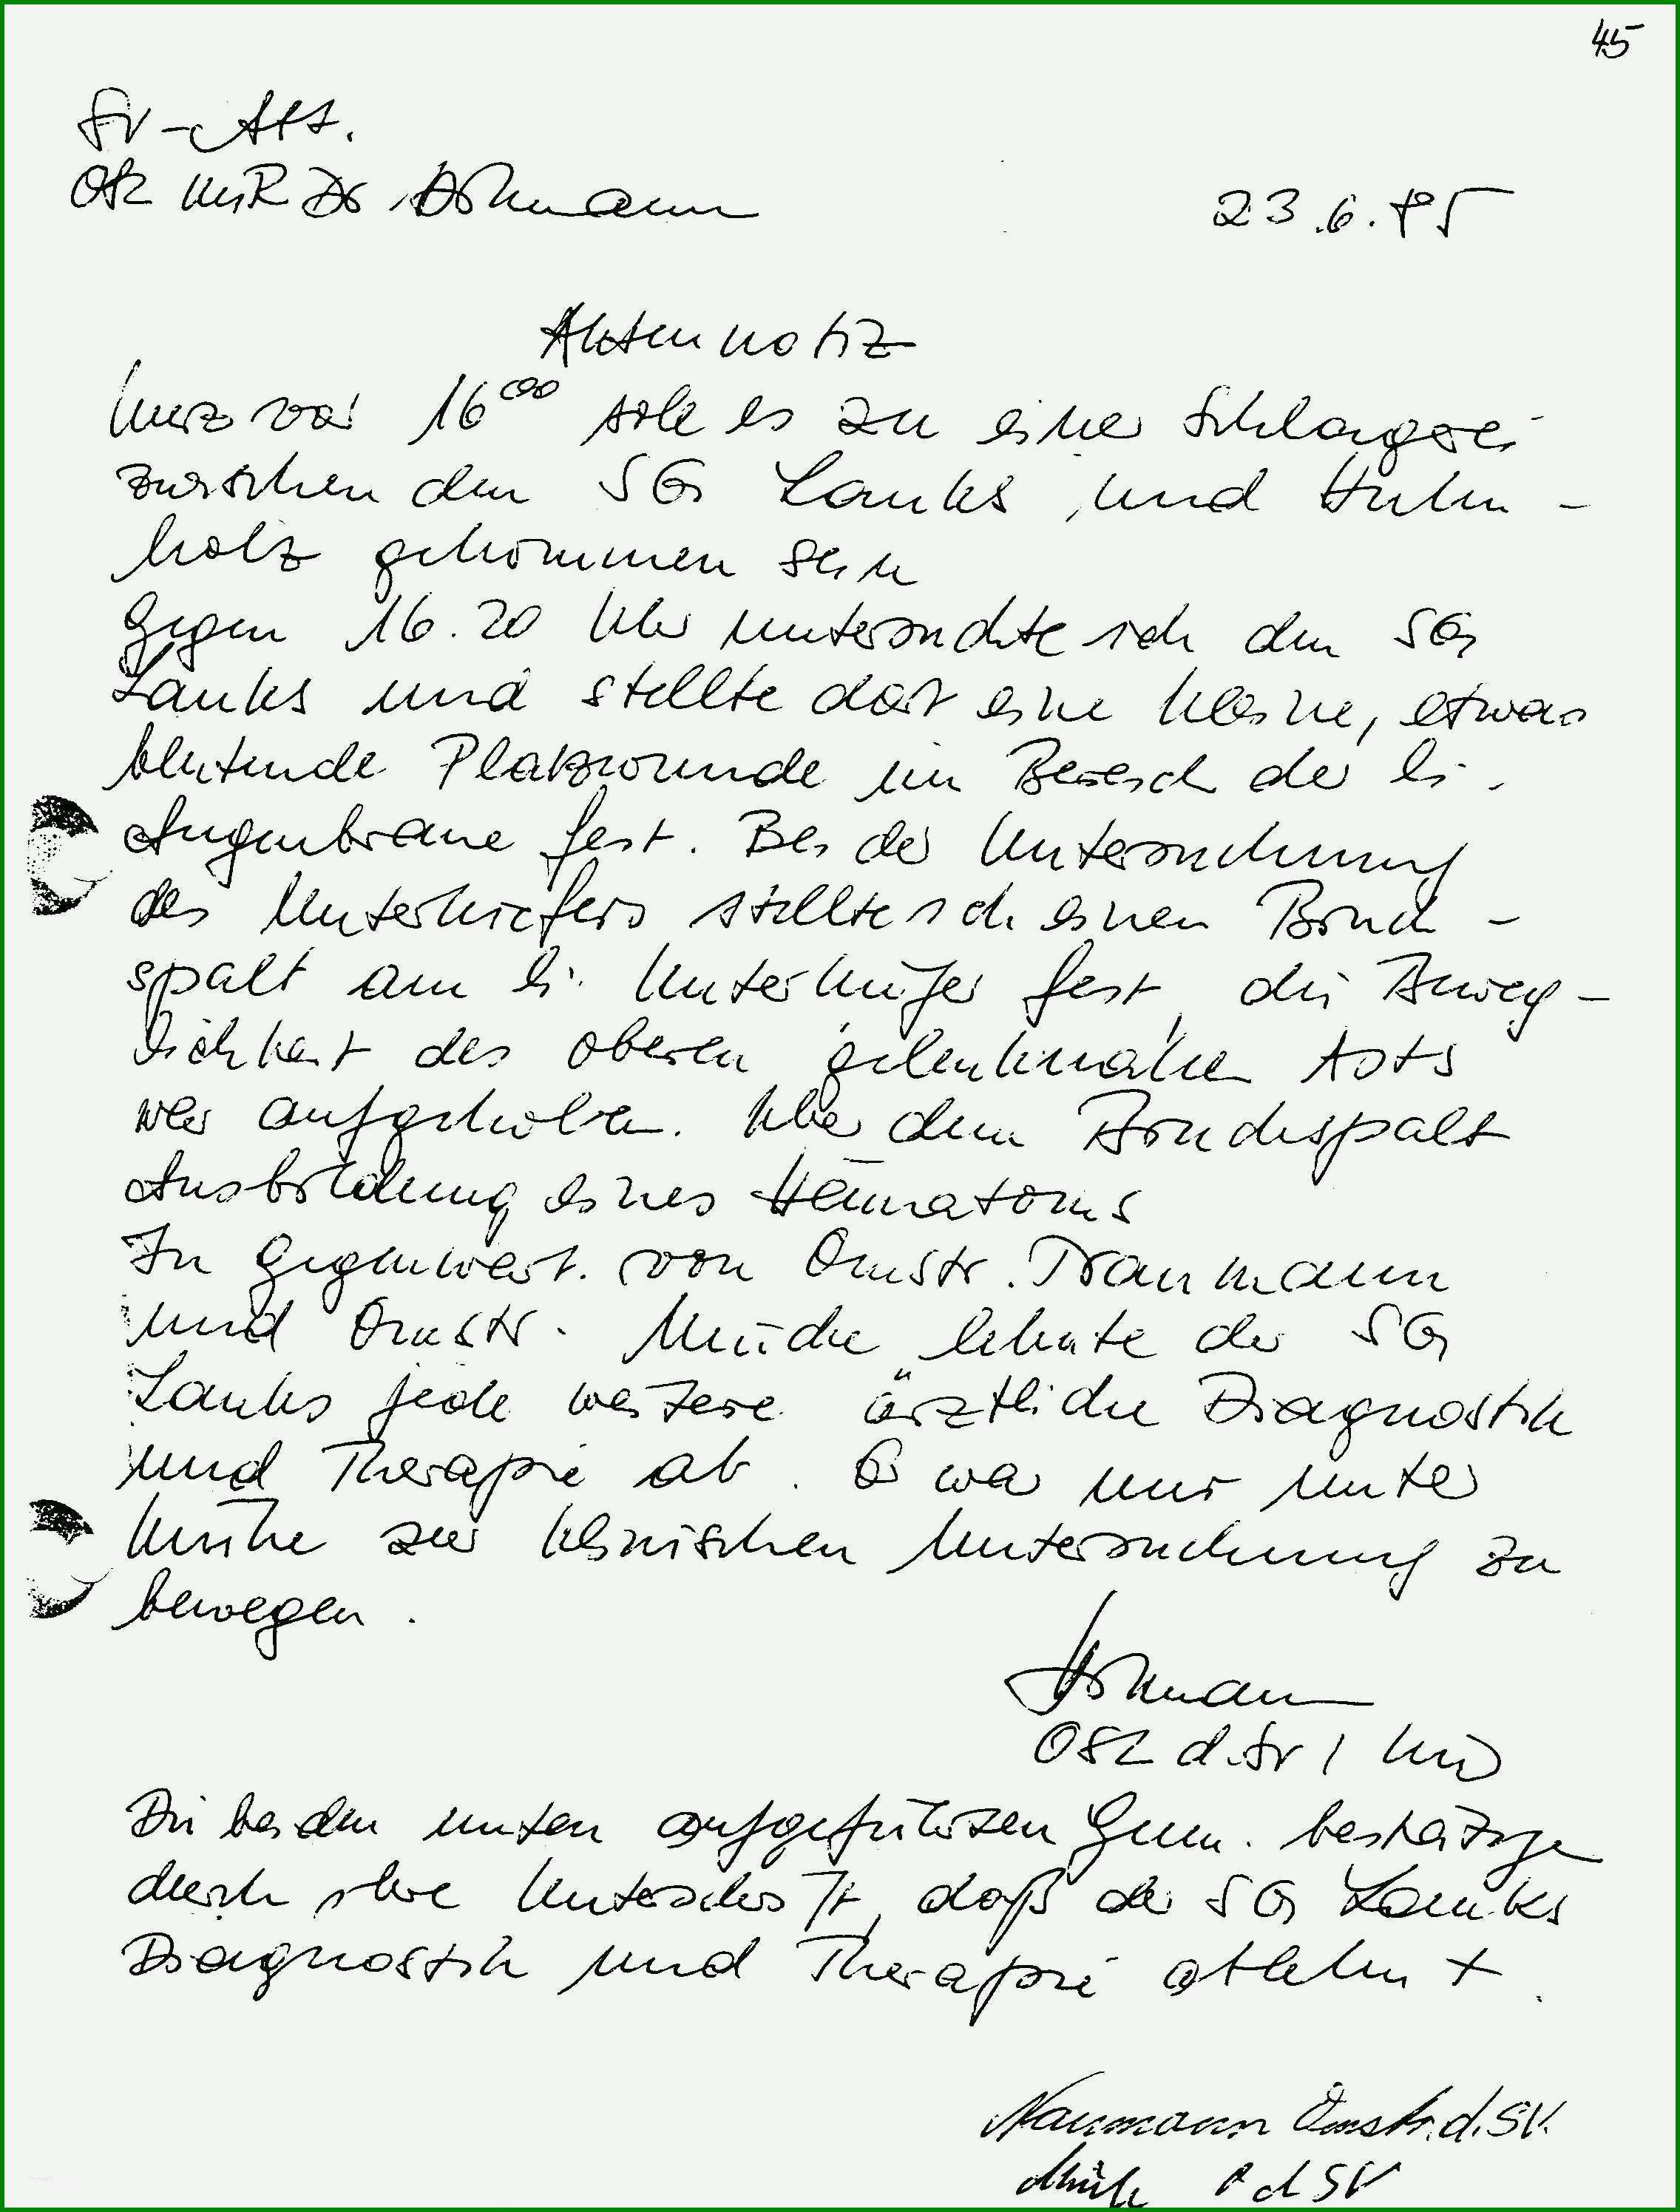 45
SV-Abt.
OSL MR Dr. Hohmann
23.6.85
Aktennotiz
Kurz vor 16 00 soll es zu einer Schlägerei
zwischen den SG Lauks und Huhn-
holz gekommen sein
Gegen 16.20 Uhr untersuchte ich den SG
Lauks und stellte dort eine kleine, etwas
blutende Platzwunde im Bereich der li.
Augenbraue fest. Bei der Untersuchung
des Unterkiefers stellte ich einen Bruch-
spalt am li. Unterkiefer fest, die Beweg-
lichkeit des oberen gelenknahen Asts
war aufgehoben. Über dem Bruchspalt
Ausbildung eines Hämatoms
In Gegenwart von Omstr.
und Omstr. lehnte der SG
Lauks jede weitere ärztliche Diagnostik
und Therapie ab. Er war nur unter
Mühe zur klinischen Untersuchung zu
bewegen.
OSL d. SV /
Die beiden unten aufgeführten Gen. bestätigen
durch ihre Unterschrift, daß der SG Lauks
Diagnostik und Therapie ablehnt.
Naumann Omstr. d. SV.
d SV